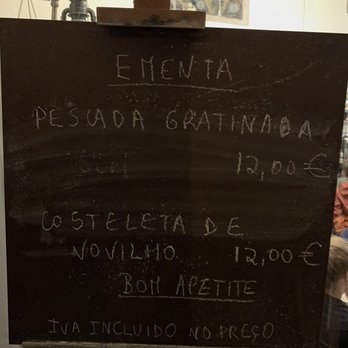 EMENTA
PESCADA GRATINADA
12,00€
COSTELETA DE
NOVILHO 12,00€
BOM APETITE
IVA INCLUIDO NO PREÇO